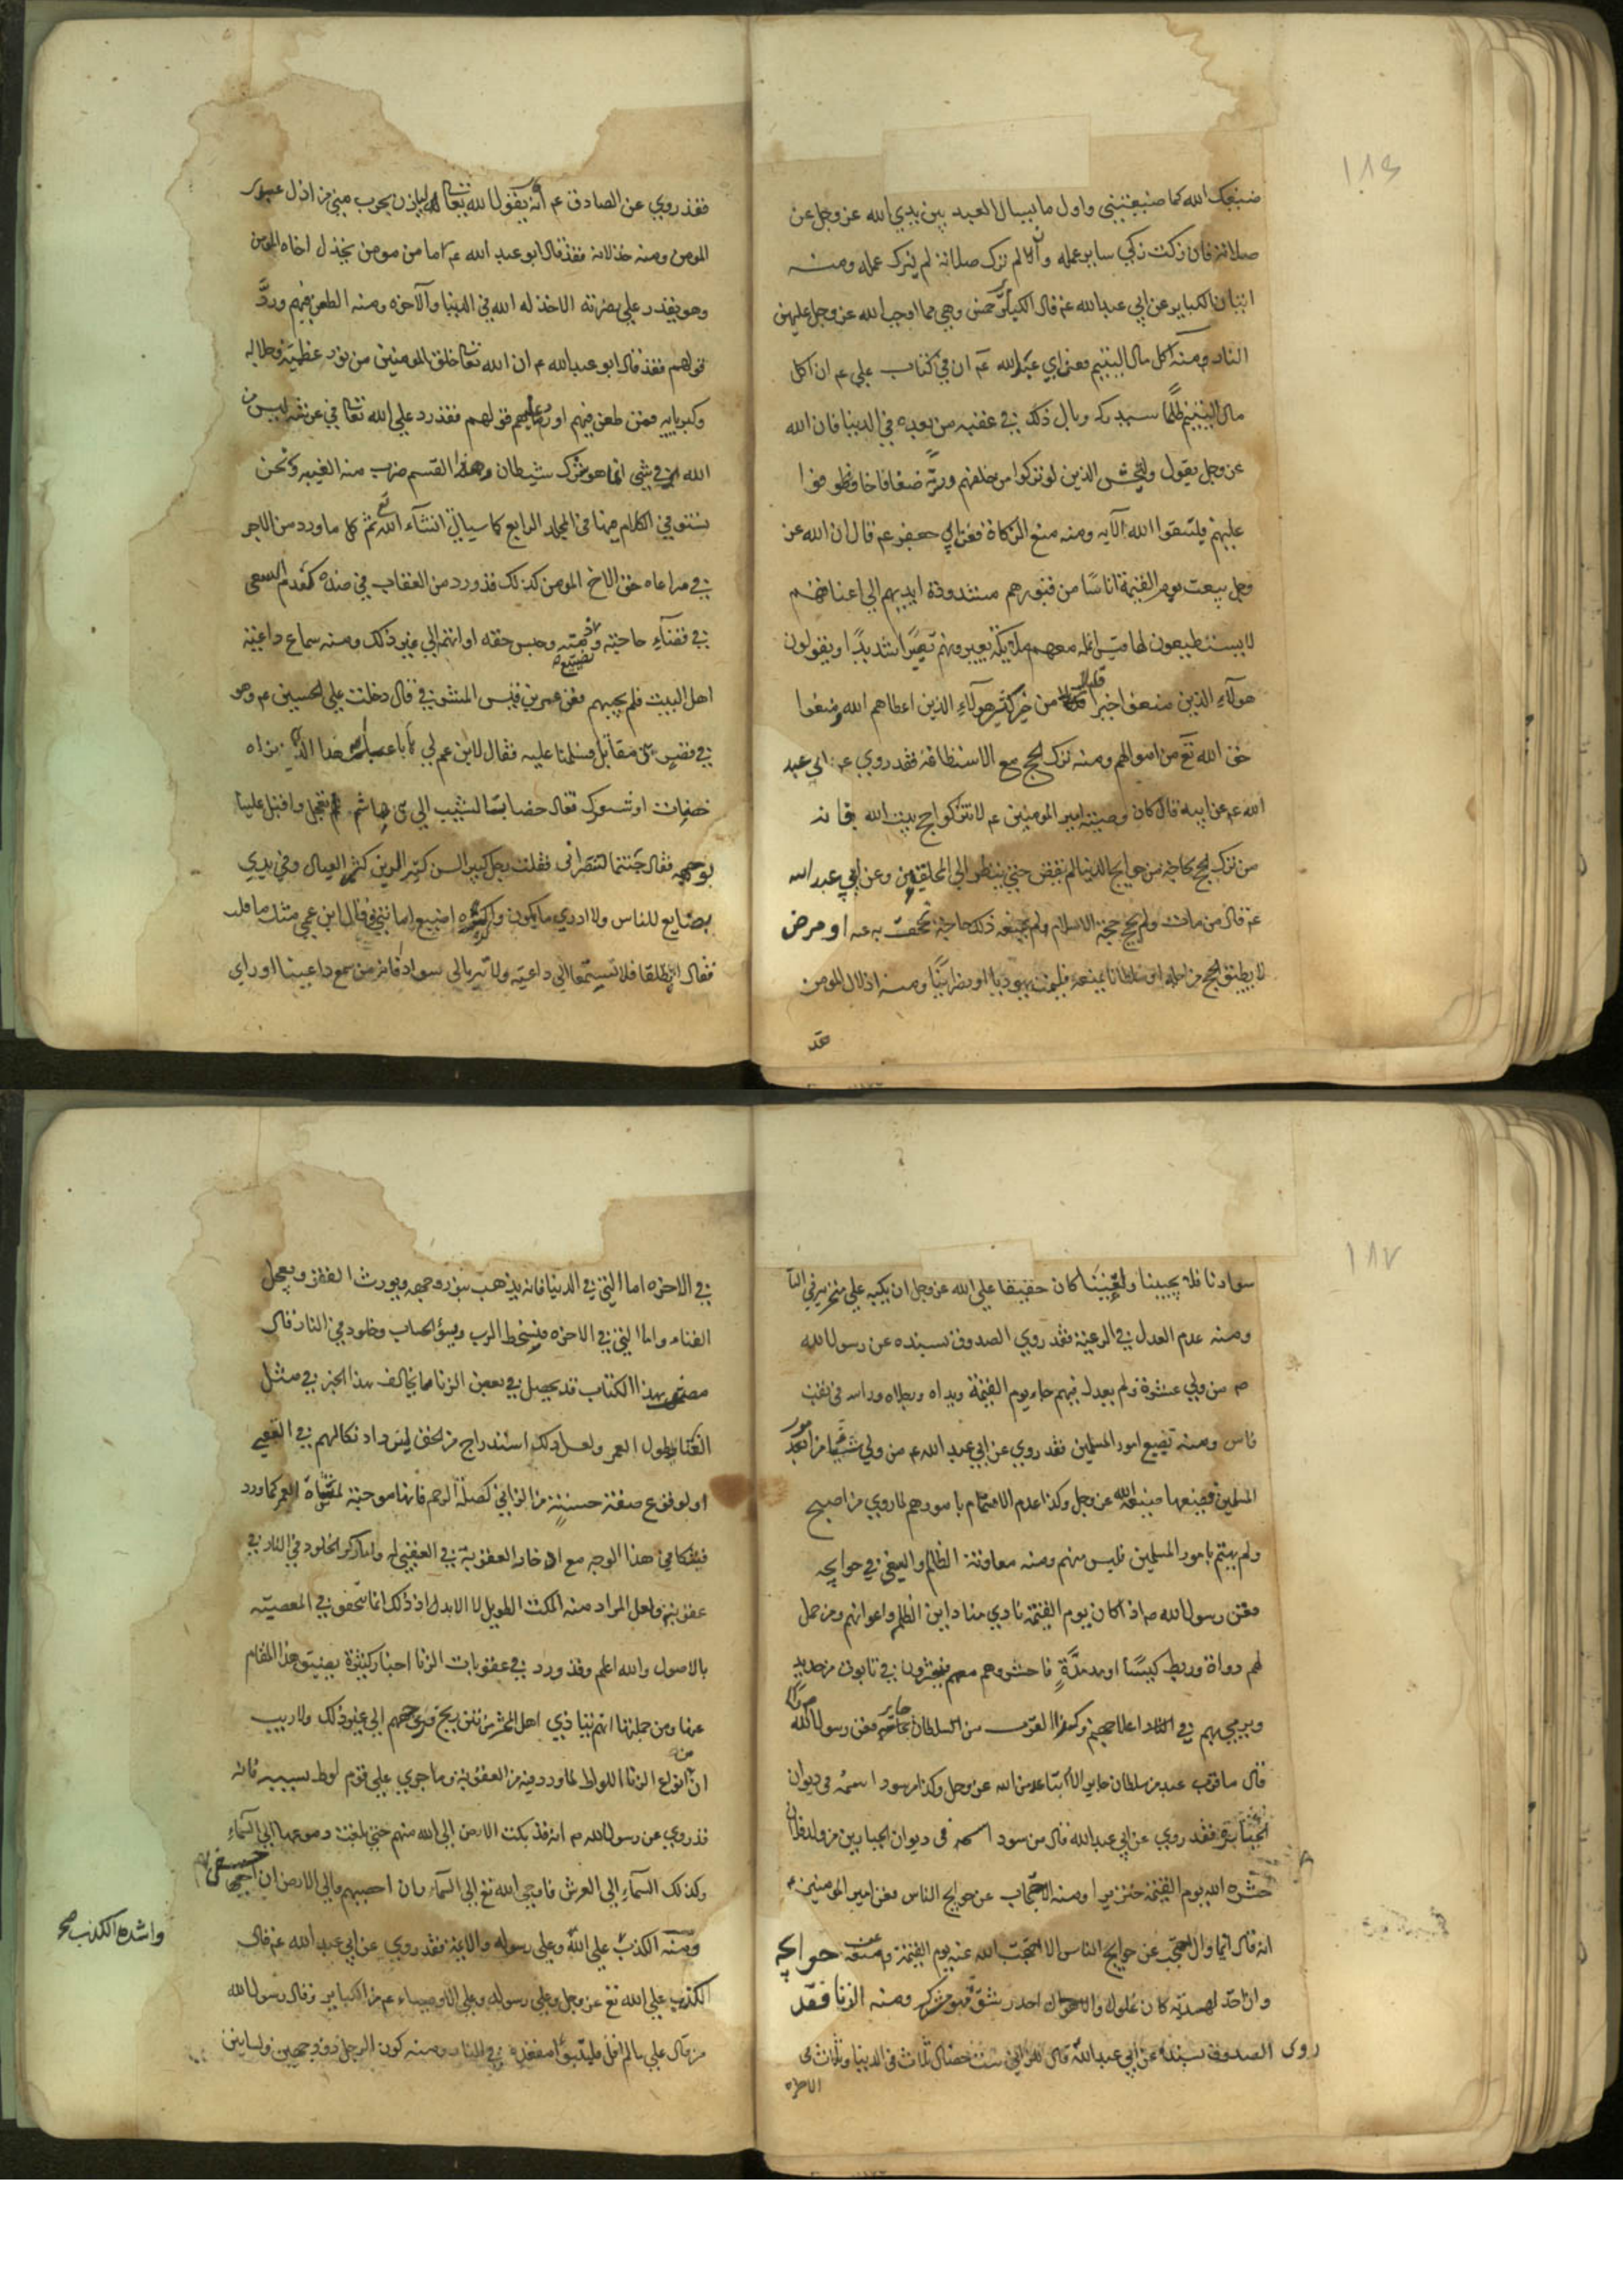 ١٨٦
ضيعك الله كما ضيعتني واول ما يسال العبد بين يدي الله عز وجل عن
صلاته فان زكت زكي ساير عمله وان لم تزك صلاته لم يزك عمله ومنه
اتيان الكباير عن ابي عبد الله عم قال الكباير خمس وهي مما اوجب الله عز وجل عليهن
النار ومنه اكل مال اليتيم فعن ابي عبد الله عم ان في كتاب علي عم ان اكل
مال اليتيم ظلما سيدركه وبال ذلك في عقبه من بعده في الدنيا فان الله
عز وجل يقول وليخش الذين لو تركوا من خلفهم ذرية ضعافا خافوا
عليهم فليتقوا الله الآيه ومنه منع الزكاة فعن ابي جعفر عم قال ان الله عز
وجل يبعث يوم القيمة اناسا من قبورهم مشدودة ايديهم الى اعناقهم
لا يستطيعون لها قيس انملة معهم ملائكة يعيرونهم تعييرا شديدا ويقولون
هولآء الذين منعوا خيرا قليلا من خير كثير هولآء الذين اعطاهم الله فمنعوا
حق الله تع من اموالهم ومنه ترك الحج مع الاستطاعة فقد روي عن ابي عبد
الله عم عن ابيه قال كان وصية امير المومنين عم لا تتركوا حج بيت الله فانه
من ترك الحج لحاجة من حوايج الدنيا لم يقض حتى ينظر الى المحلقين وعن ابي عبد الله
عم قال من مات ولم يحج حجة الاسلام ولم يمنعه ذلك حاجة تجحف به او مرض
لا يطيق الحج من اجله او سلطانا يمنعه فليمت يهوديا او نصرانيا ومنه اذلال المومن
فقد
فقد روي عن الصادق عم انه يقول الله تعالى لياذن بحرب مني من اذل عبدي
المومن ومنه خذلانه فقد قال ابو عبد الله عم ما من مومن يخذل اخاه المومن
وهو يقدر على نصرته الا خذله الله في الدنيا والآخره ومنه الطعن فيهم ورد
قولهم فقد قال ابو عبد الله عم ان الله تعالى خلق المومنين من نور عظمته وجلاله
وكبريايه فمن طعن فيهم او رد عليهم قولهم فقد رد على الله تعالى في عرشه ليس من
الله في شي انما هو شرك شيطان وهذا القسم ضرب منه الغيبه ونحن
نستوفي الكلام فيها في المجلد الرابع كما سياتي انشآء الله تع ثم كل ما ورد من الاجر
في مراعاه حق الاخ المومن كذلك قد ورد من العقاب في ضده كعدم السعي
في قضآء حاجته وحبس حقه او اتهم الى غير ذلك ومنه سماع داعية
اهل البيت فلم يجبهم فعن عمر بن قيس المشرفي قال دخلت على الحسين عم وهو
في قصر بني مقاتل فسلمنا عليه فقال لابن عم لي يا ابا عبد الله هذا الذي نراه
خضاب او شعرك فقال خضاب الشيب الى بني هاشم واقبل علينا
بوجهه فقال جئتما لنصرتي فقلت رجل كبير السن كثير الدين كثير العيال وفي يدي
بضايع للناس ولا ادري ما يكون واكره اضيع امانتي وقال ابن عمي مثل ما قلت
فقال انطلقا فلا تسمعا لي داعية ولا تريا لي سوادا فانه من سمع داعيتنا او راى
١٨٧
سوادنا فلا يجيبنا ولم يغثنا كان حقيقا على الله عز وجل ان يكبه على منخريه في النار
ومنه عدم العدل في الرعية فقد روي الصدوق بسنده عن رسول الله
ص من ولي عشرة ولم يعدل فيهم جاء يوم القيمة ويداه ورجلاه وراسه في ثقب
فاس ومنه تضيع امور المسلمين فقد روي عن ابي عبد الله عم من ولي شيئا من امور
المسلمين فضيعها ضيعه الله عز وجل وكذا عدم الاهتمام بامورهم لما روي من اصبح
ولم يهتم بامور المسلمين فليس منهم ومنه معاونة الظالم والسعي في حوايجه
فعن رسول الله ص اذا كان يوم القيمة نادي مناد اين الظلمه واعوانهم ومن حمل
لهم دواة وربط كيسا او مد مدة فاحشروهم معهم في تابوت من حديد
ويرمي بهم في النار وكذا القرب من السلطان جاير فعن رسول الله
قال ما قرب عبد من سلطان جاير الا تباعد من الله عز وجل وكذا من سود اسمه في ديوان
الجبابرة فقد روي عن ابي عبد الله قال من سود اسمه في ديوان الجبارين من ولد فلان
حشره الله يوم القيمة خنزيرا ومنه الاحتجاب عن حوايج الناس فعن امير المومنين عم
انه قال ايما وال احتجب عن حوايج الناس الا احتجب الله عنه يوم القيمة وعن حوايجه
وان اخذ هدية كان غلول وان اخذ رشوة فهو مشرك ومنه الزنا فقد
روى الصدوق بسنده عن ابي عبد الله قال للزاني ست خصال ثلاث في الدنيا وثلاث في
الاخره
في الاخره اما التي في الدنيا فانه يذهب بنور وجهه ويورث الفقر ويعجل
الفناء واما التي في الاخره فسخط الرب وسوء الحساب وخلود في النار قال
مصنف هذا الكتاب قد يحصل في بعض الزناة ما يخالف هذا الخبر في مثل
الغنا وطول العمر ولعل ذلك استدراج من الحق ليزداد نكالهم في العقبى
او لوقوع صفة حسنة من الزاني كصلة الرحم فانها موجبة العمر كما ورد
في هذا الوجه مع ادخار العقوبة في العقبى له واما ذكر الخلود في النار في
عقوبته ولعل المراد منه المكث الطويل لا الابدي اذ ذلك انما تحقق في المعصية
بالاصول والله اعلم وقد ورد في عقوبات الزنا اخبار كثيرة يضيق هذا المقام
عنها ومن جملتها انهم يتاذي اهل المحشر من نتن ريح فروجهم الى غير ذلك ولا ريب
ان من انواع الزنا اللواط لما ورد فيه من العقوبة وما جرى على قوم لوط بسببه فانه
قد روي عن رسول الله ص انه قد بكت الارض الى الله منهم حتى بلغت دموعها الى السمآء
وكذلك السمآء الى العرش فاوحى الله تع الى السمآء ان احصبيهم والى الارض ان اخسفي بهم
ومنه الكذب على الله وعلى رسوله والائمة فقد روي عن ابي عبد الله عم قال
واشده الكذب صح
الكذب على الله تع عز وجل وعلى رسوله وعلى الاوصياء عم من الكباير وقال رسول الله
من قال علي ما لم اقل فليتبوا مقعده في النار ومنه كون الرجل ذو وجهين ولسانين